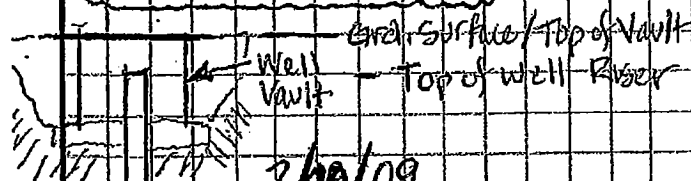 Grd. Surface/Top of Vault
Well
Vault
- Top of Well Riser